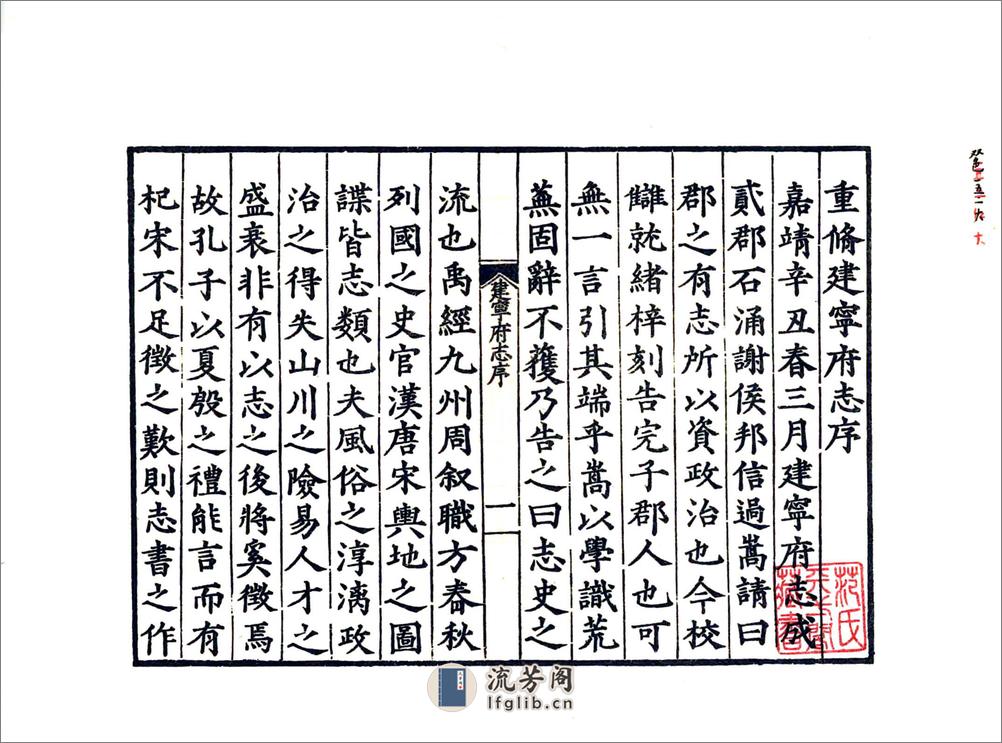 重脩建寧府志序
嘉靖辛丑春三月建寧府志成
貳郡石涌謝侯邦信過嵩請曰
郡之有志所以資政治也今校
讎就緒梓刻告完子郡人也可
無一言引其端乎嵩以學識荒
蕪固辭不獲乃告之曰志史之
建寧府志序
一
流也禹經九州周叙職方春秋
列國之史官漢唐宋輿地之圖
諜皆志類也夫風俗之淳漓政
治之得失山川之險易人才之
盛衰非有以志之後將奚徵焉
故孔子以夏殷之禮能言而有
杞宋不足徵之歎則志書之作
范氏
天一閣
藏書
流芳阁
lfglib.cn